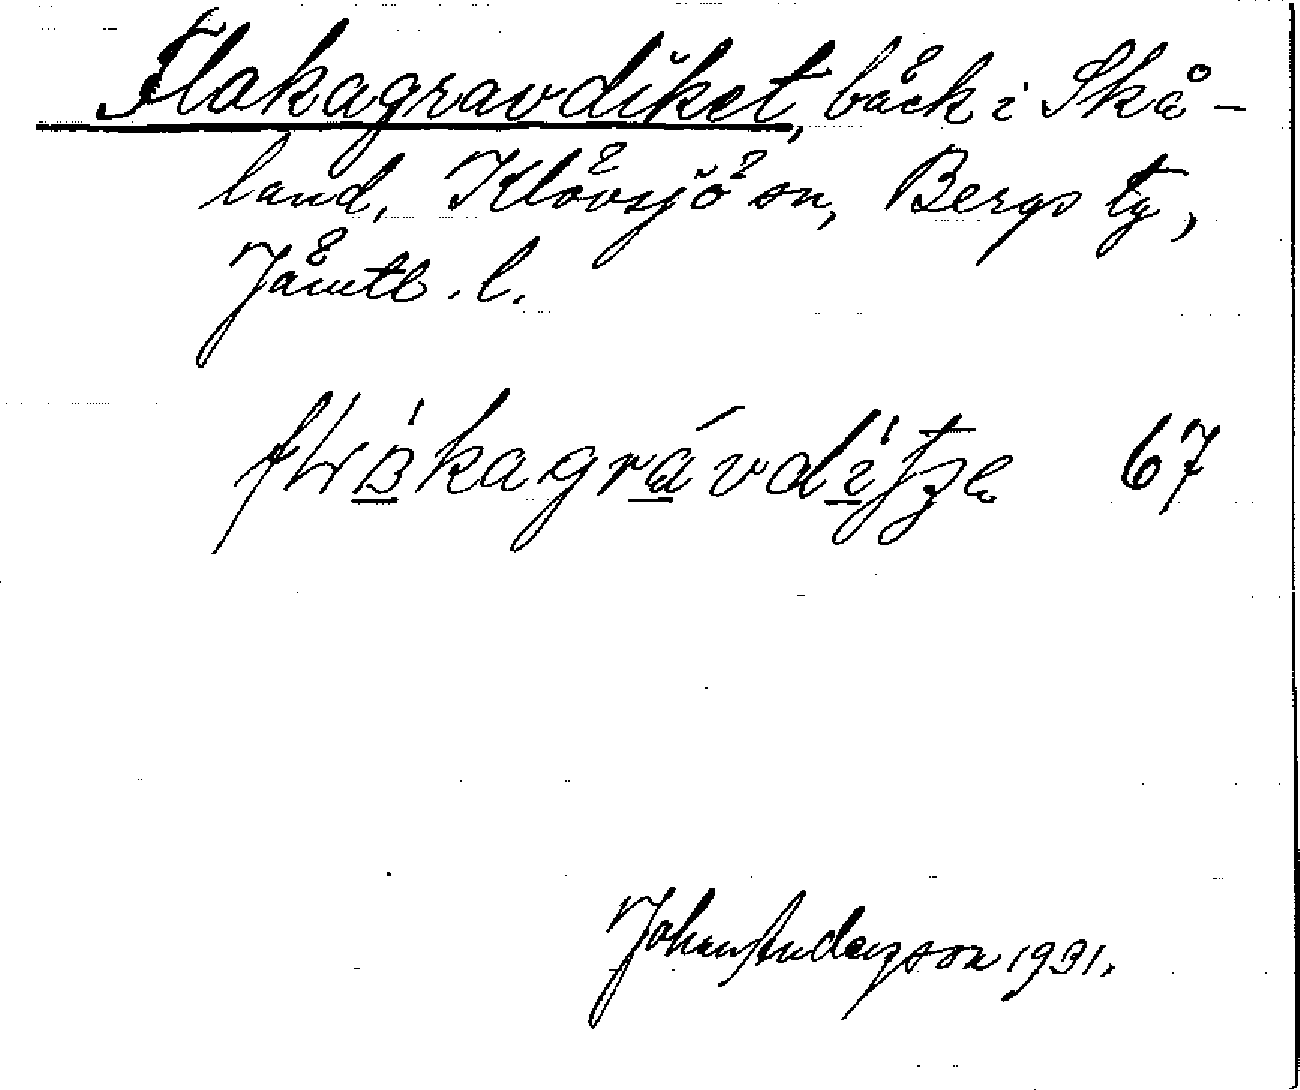 Flakagravdiket, bäck i Skå-
land, Klövsjö sn, Bergs tg,
Jämtl. l.
67
John Anderson 1931.